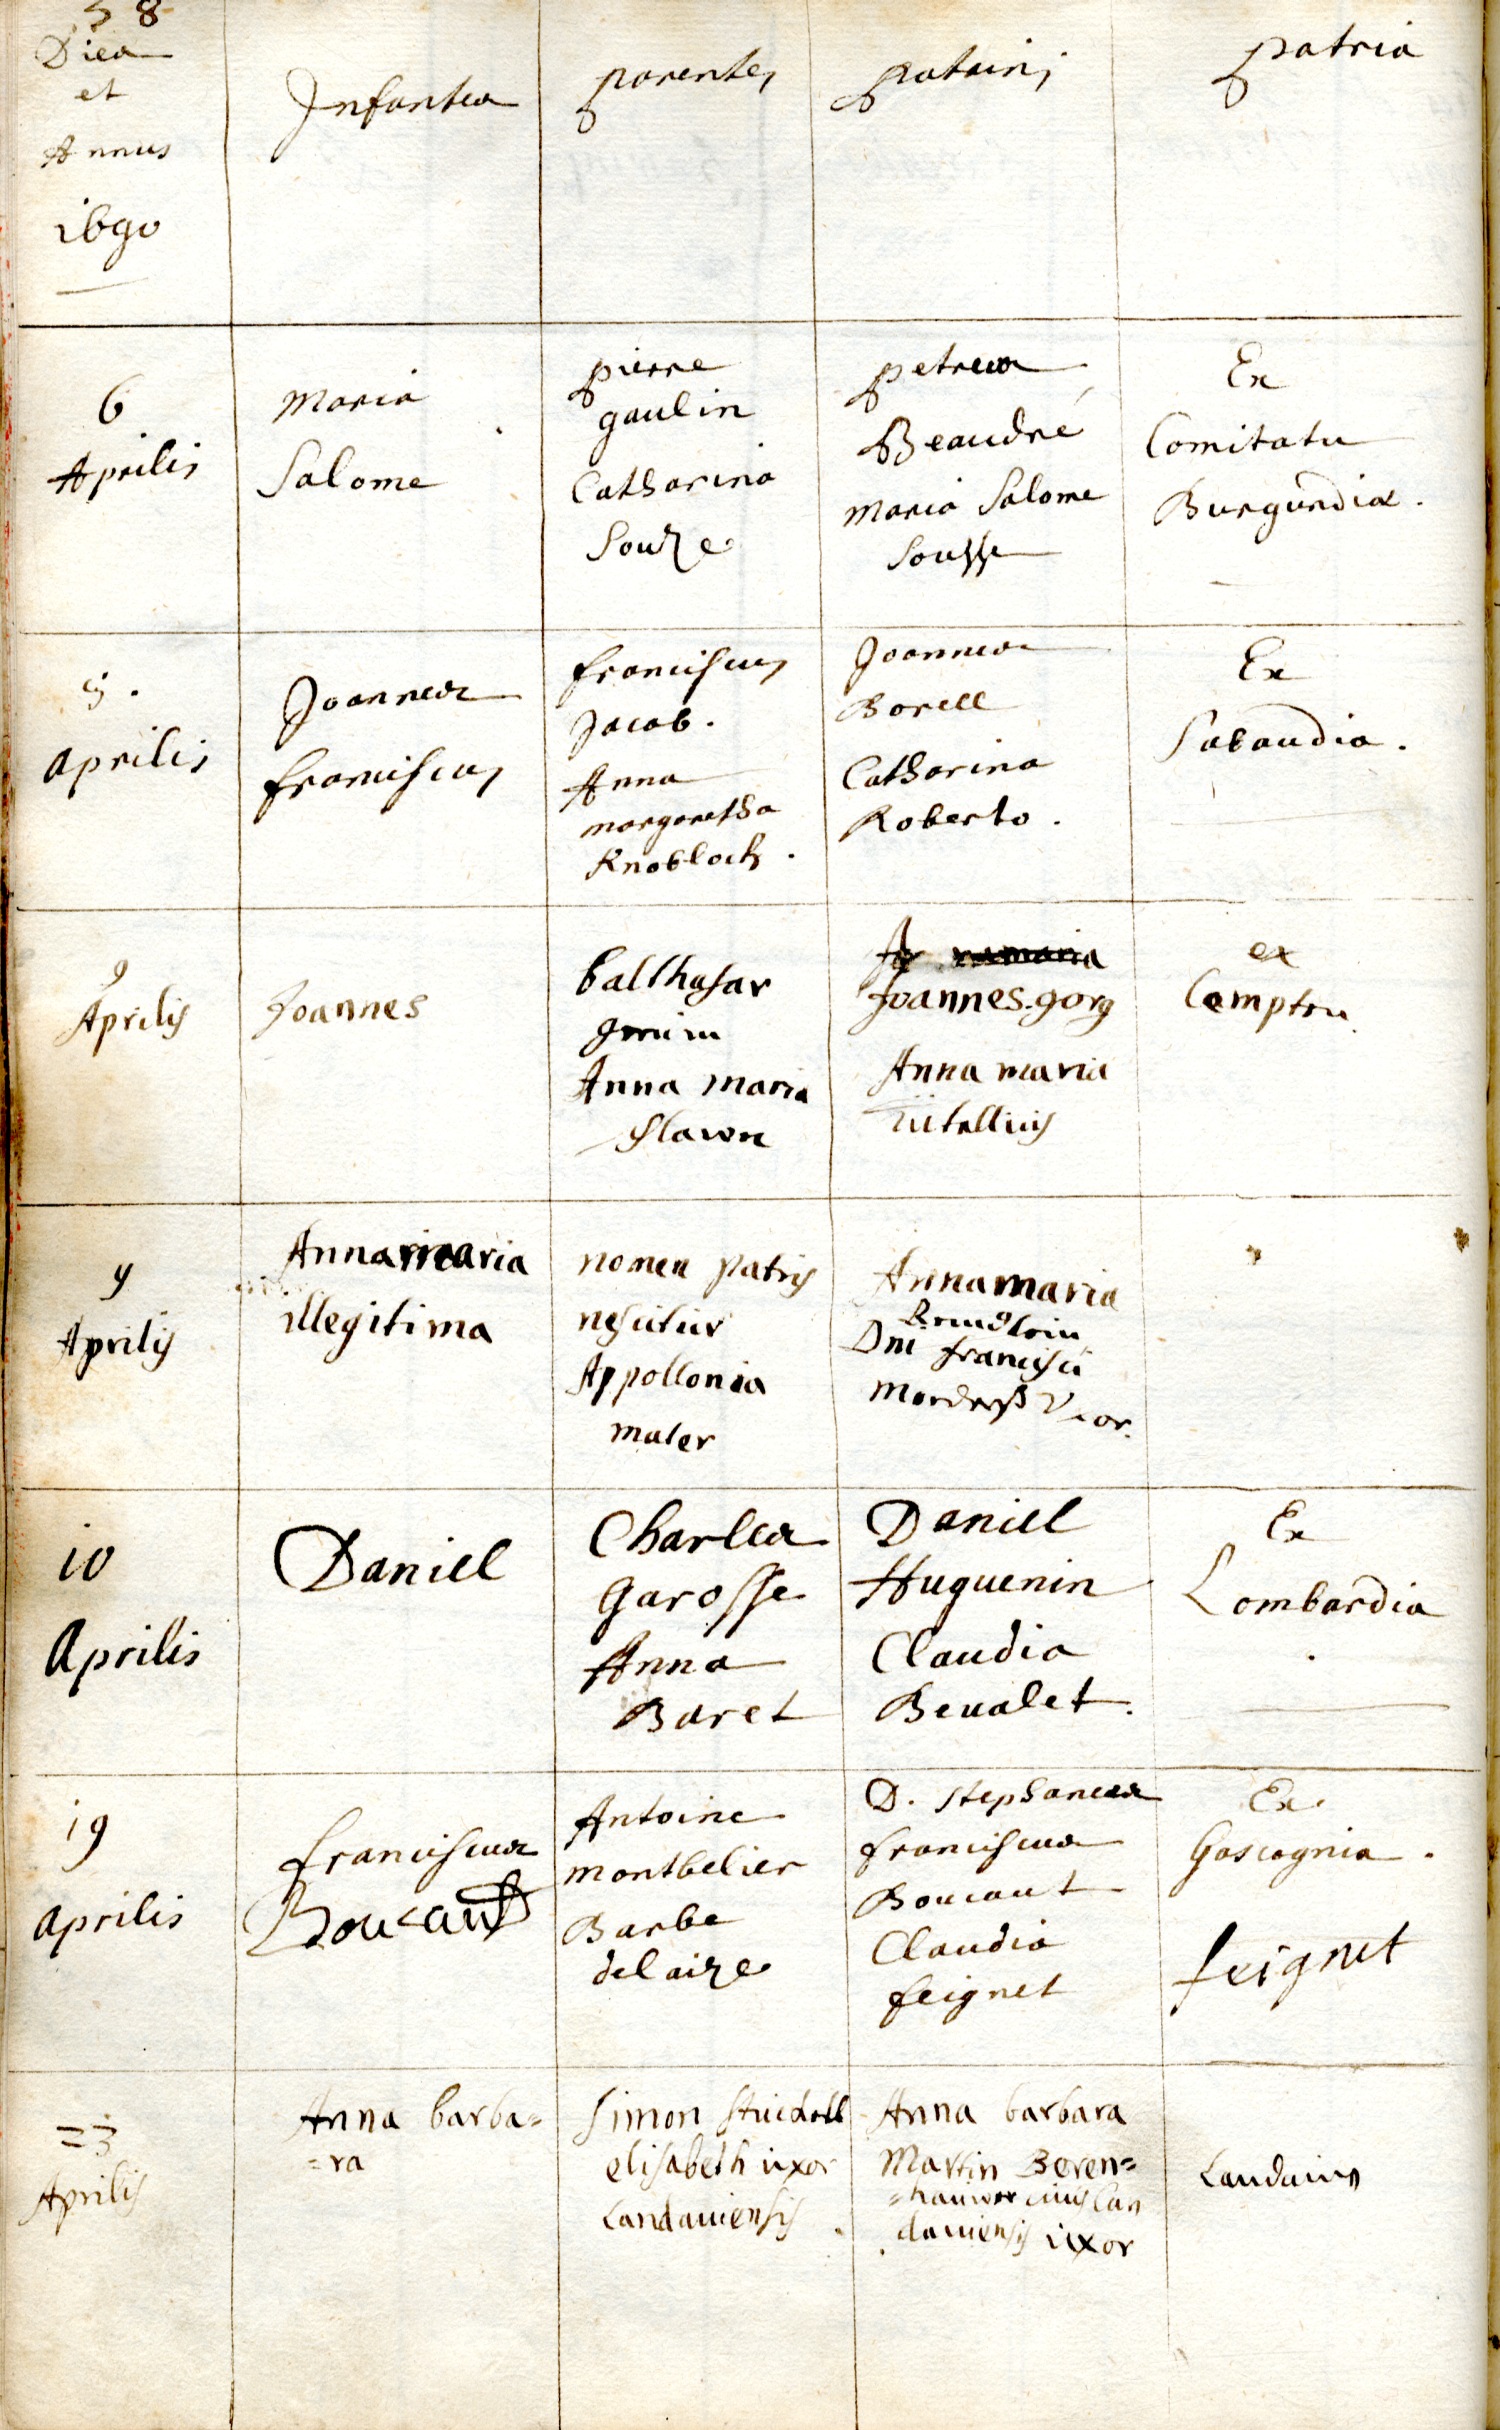 58
Dies
et
Annus
1690
Infantes
parentes
patrini
patria
6
Aprilis
Maria
Salome
pierre
gaulin
Catharina
Souze
petrus
Beaudré
Maria Salome
Sousse
Ex
Comitatu
Burgundiæ.
Aprilis
Joannes
franciscus
franciscus
Jacob.
Anna
margaretha
Knobloch.
Joannes
Borell
Catharina
Roberto.
Ex
Sabaudia.
9
Aprilis
Joannes
balthasar
Anna Maria
Joannes gorg
Anna maria
ex
9
Aprilis
Anna maria
illegitima
nomen patris
nescitur
Appollonia
mater
Anna maria
Dni francisci
Uxor.
10
Aprilis
Daniel
Charles
Garosse
Anna
Baret
Daniel
Huguenin
Claudia
Beualet.
Ex
Lombardia
19
Aprilis
franciscus
Boucaut
Antoine
montbelier
Barbe
delaize
D. Stephanus
franciscus
Boucaut
Claudia
feignet
Ex
Gascognia.
feignet
23
Aprilis
Anna barba=
=ra
Simon
elisabeth uxor
Landauiensis
Anna barbara
Martin Beren=
=hauwer ciuis Lan
dauiensis uxor